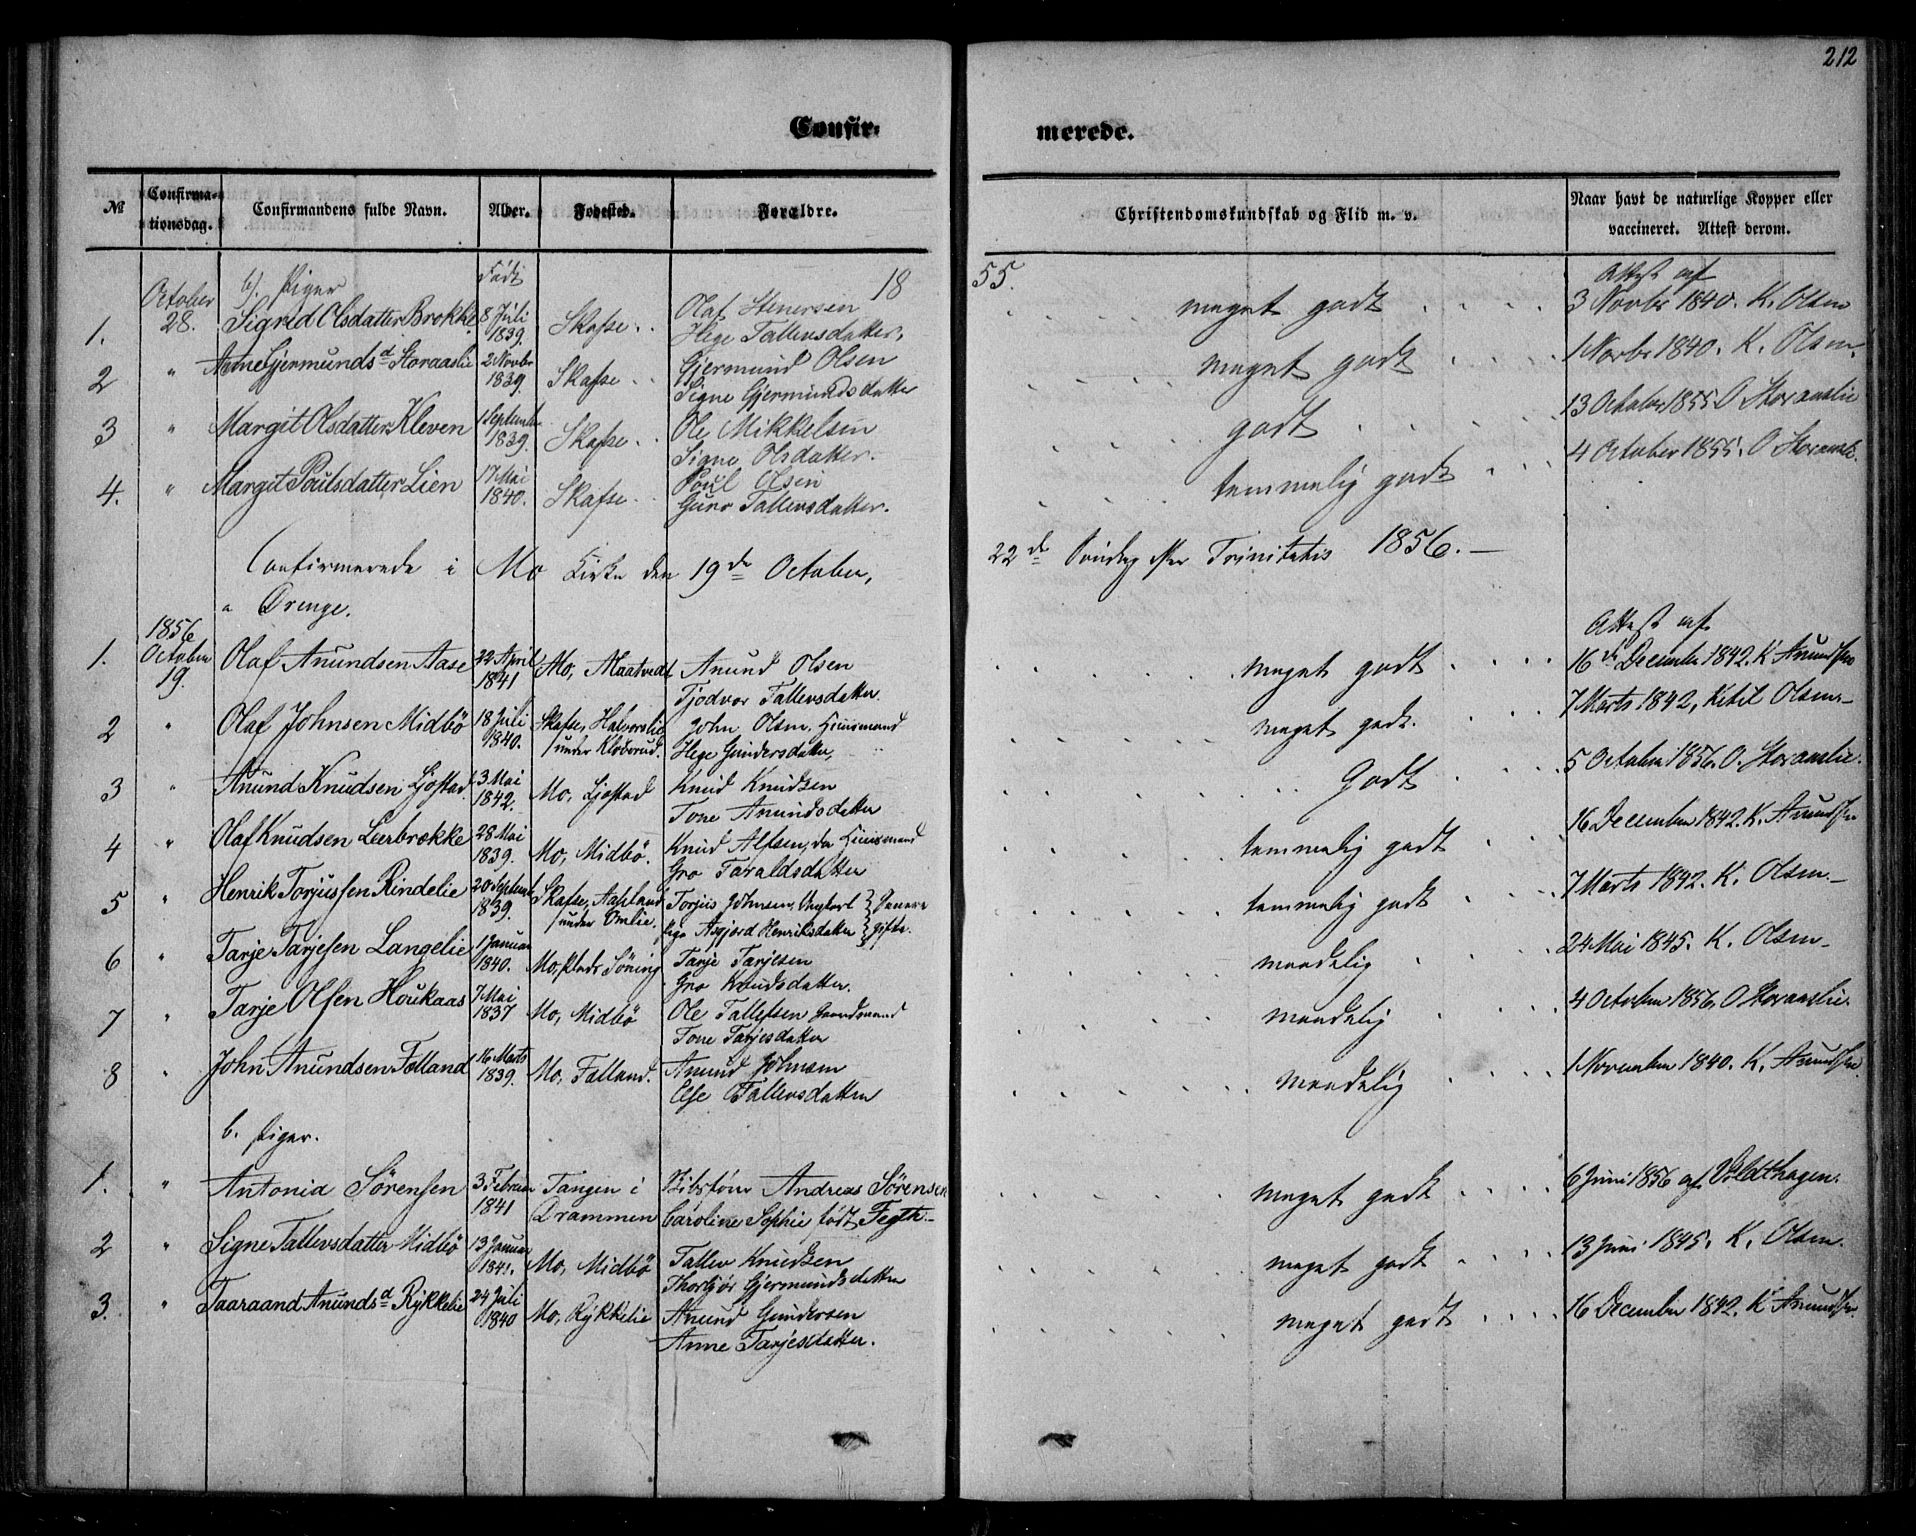 212
Confir- merede.
№ Confirma-tionsdag. Confirmandens fulde Navn. Alder. Fødested. Forældre. Christendomskundskab og Flid m. v. Naar havt de naturlige Kopper eller vaccineret. Attest derom.
October b). Piger Født 18 55. Attest af
1. 28. Sigrid Olsdatter Brokke 8 Juli 1839. Skafse Olaf Stenersen meget godt 3 Novbr 1840. K. Olsen
Hege Tallevsdatter.
2 " Anne Gjermundsd Storaaslie 2 Novbr 1839. Skafse Gjermund Olsen meget godt 1 Novbr 1840. K. Olsen.
Signe Gjermundsdatter
3 " Margit Olsdatter Kleven 1 Septembr 1839. Skafse Ole Mikkelsen godt 13 October 1855 O Storaaslie
Signe Olsdatter.
4. " Margit Poulsdatter Lien 17 Mai 1840. Skafse Poul Olsen temmelig godt 4 October 1855. O Storaaslie.
Guro Tallevsdatter.
Confirmerede i Mo Kirke den 19de October, 22de Søndag efter Trinitatis 1856.
a Drenge.
1856 Attest af
1. October 19. Olaf Anundsen Aase 22 April 1841 Mo, Maatvedt Anund Olsen meget godt 16de December 1842. K Anundsen
Tjodvor Tallevsdatter.
2 " Olaf Johnsen Midbö 18 Juli 1840. Skafse, Halvorslie under Kloverud. John Olsen, Huusmand meget godt. 7 Marts 1842, Ketil Olsen.
Hege Gundersdatter,
3 " Anund Knudsen Ljostad 3 Mai 1842. Mo, Ljostad Knud Knudsen Godt 5 October 1856. O. Storaaslie.
Tone Anundsdatter
4 " Olaf Knudsen Leerbrokke 28 Mai 1839. Mo, Midbö. Knud Alfsen, Huusmand temmelig godt 16 December 1842. K. Anundsen
Gro Taraldsdatter
5 " Henrik Torjussen Rindelie 20 Septembr 1839. Skafse, Aasland under Omlie. Torjus Johnsen, Ungkarl } Senere temmelig godt 7 Marts 1842. K. Olsen.
Pige Asgjord Henriksdatter } gifte.
6 " Tarje Tarjesen Langelie 1 Januar 1840. Mo, Tarje Tarjesen maadelig 24 Mai 1845. K. Olsen
Gro Knudsdatter.
7 " Tarje Olsen Houkaas 7 Mai 1837 Mo, Midbö Ole Tallefsen Gaardmand maadelig 4 October 1856. O Storaaslie.
Tone Tarjesdatter
8 " John Anundsen Falland 16 Marts 1839. Mo, Falland. Anund Johnsen maadelig 1 November 1840. K. Anundsen.
Else Tallevsdatter
b. Piger.
1. " Antonia Sörensen 3 Februar 1841 Tangen i Drammen Andreas Sörensen meget godt 6 Juni 1856 af Voldthagen.
Caroline Sophie født Fegth.
2 " Signe Tallevsdatter Midbö 13 Januar 1841. Mo, Midbö Tallev Knudsen meget godt 13 Juni 1845. K. Olsen.
Thorbjör Gjermundsdatter
3. " Taaraand Anundsd Rykkelie 24 Juli 1840 Mo, Rykkelie Anund Gundersen meget godt 16 December 1842. K Anundsen.
Anne Tarjesdatter.